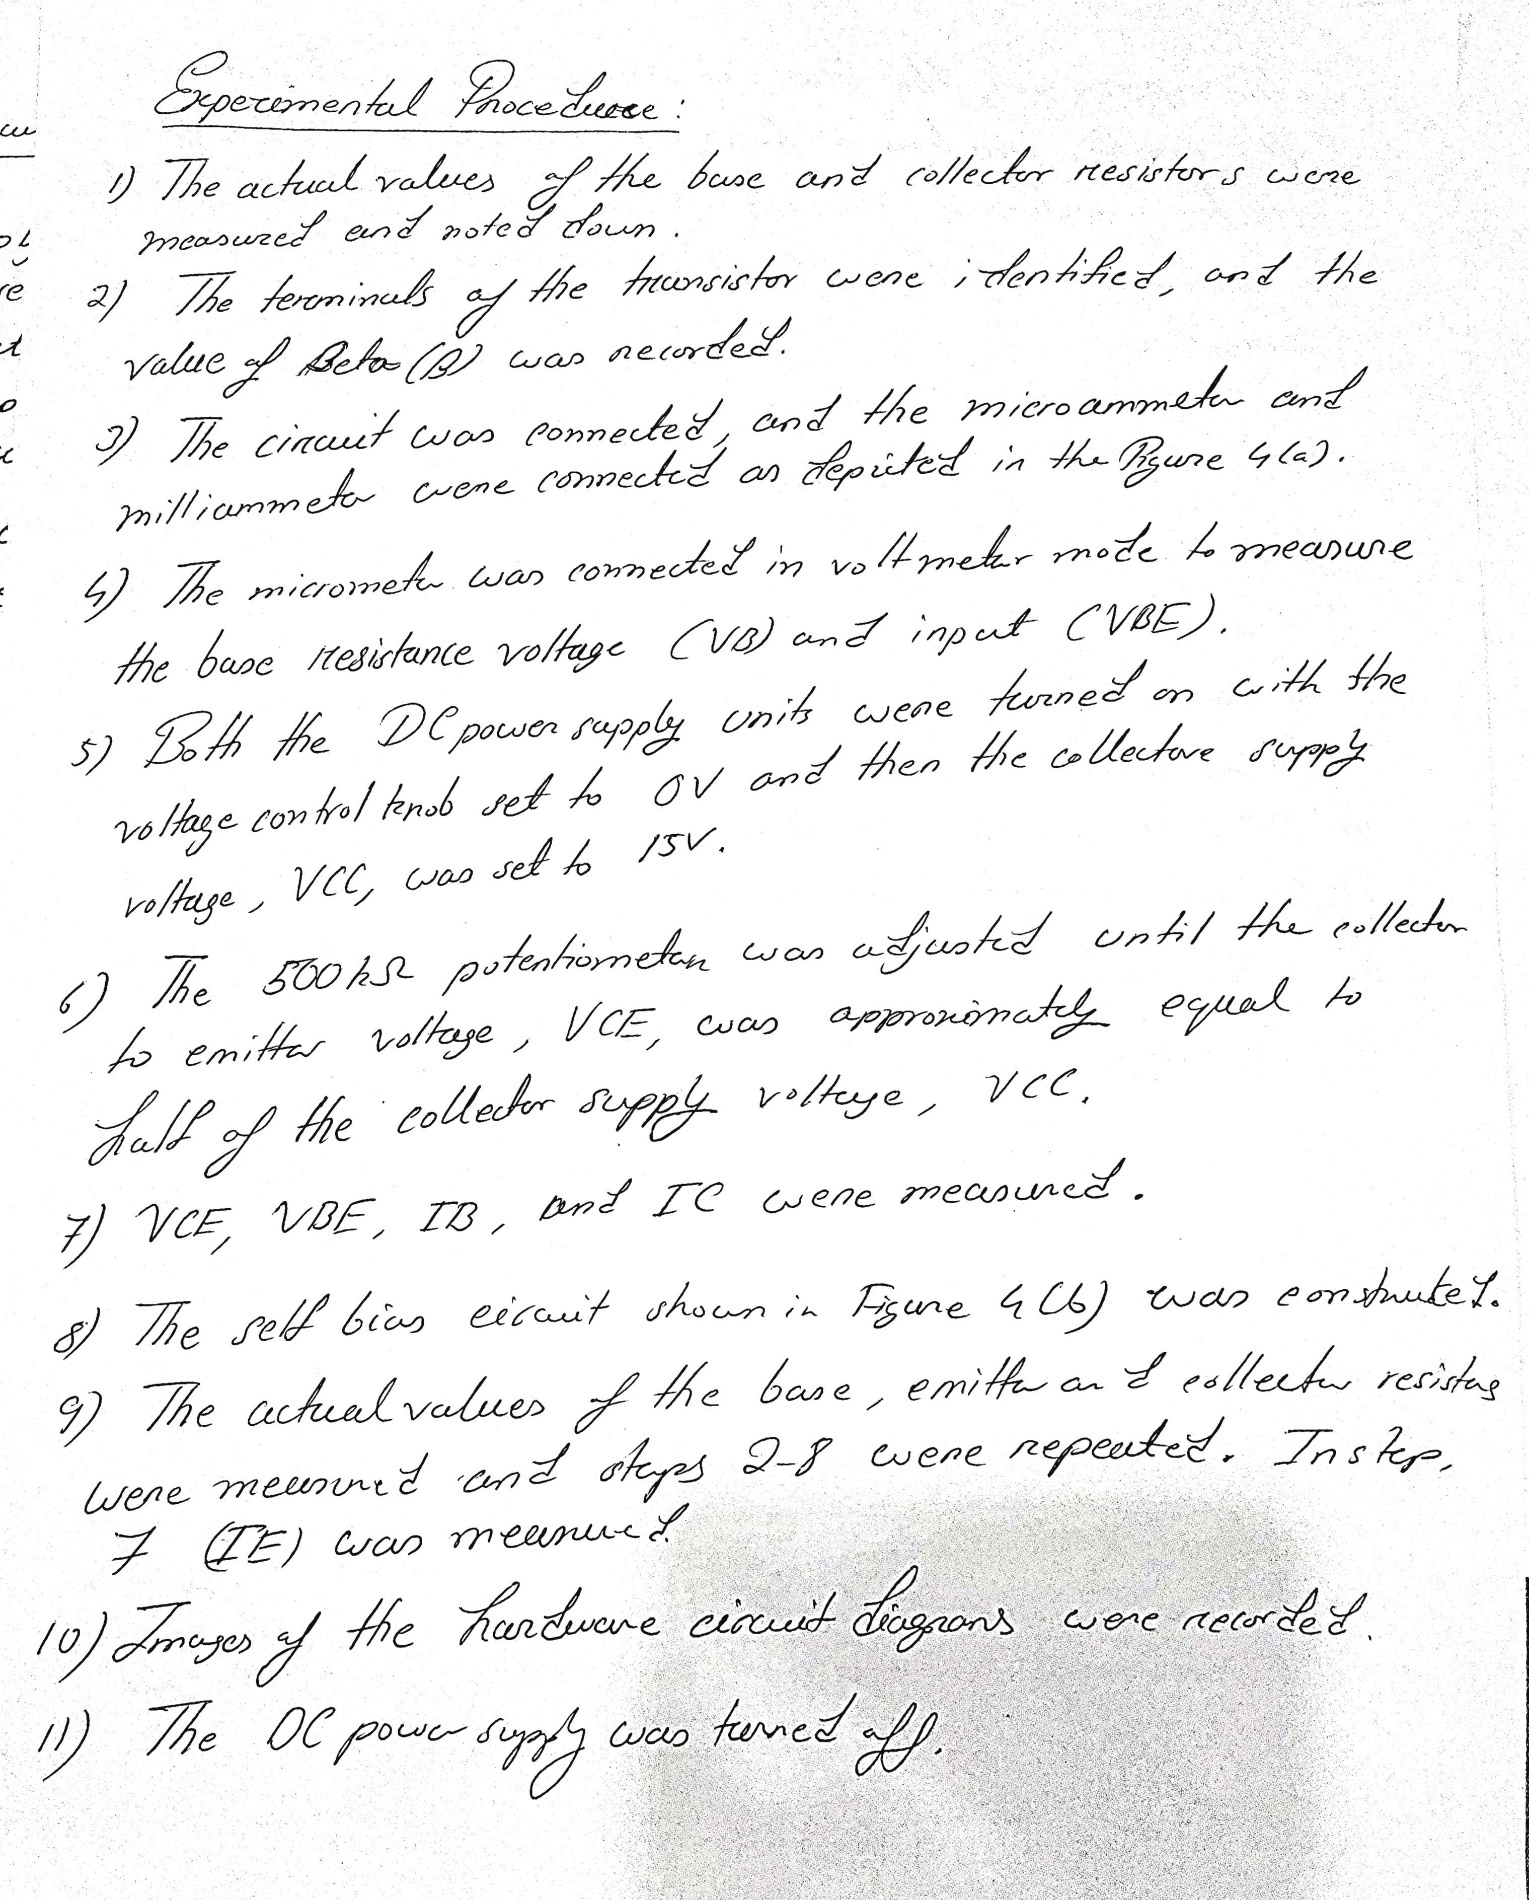 Experimental Procedure:
1) The actual values of the base and collector resistors were
measured and noted down.
2) The terminals of the transistor were identified, and the
value of Beta (B) was recorded.
3) The circuit was connected, and the microammeter and
milliammeter were connected as depicted in the Figure 4(a).
4) The micrometer was connected in voltmeter mode to measure
the base resistance voltage (VB) and input (VBE).
5) Both the DC power supply units were turned on with the
voltage control knob set to 0V and then the collectore supply
voltage, VCC, was set to 15V.
6) The 500kΩ potentiometer was adjusted until the collector
to emitter voltage, VCE, was approximately equal to
half of the collector supply voltage, VCC.
7) VCE, VBE, IB, and IC were measured.
8) The self bias circuit shown in Figure 4(b) was constructed.
9) The actual values of the base, emitter and collector resistors
were measured and steps 2-8 were repeated. In step,
7 (IE) was measured.
10) Images of the hardware circuit diagrams were recorded.
11) The DC power supply was turned off.